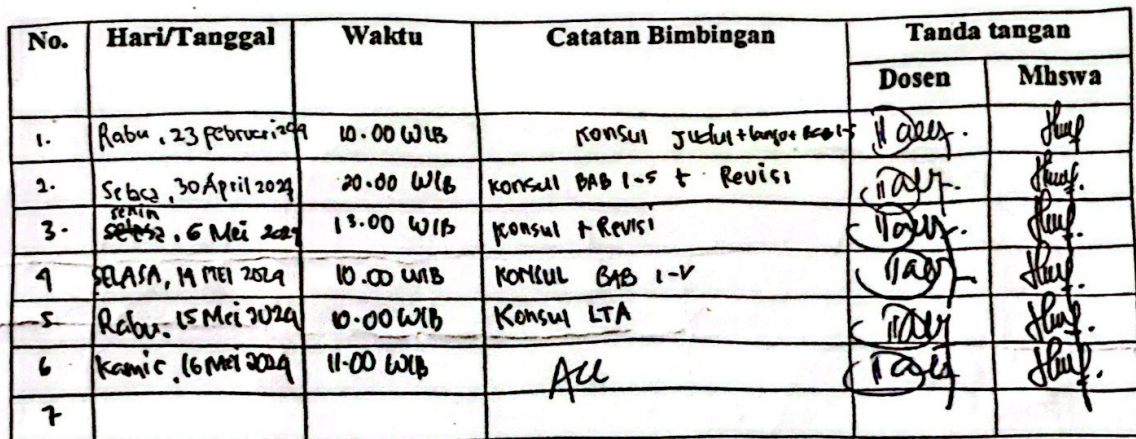 No. Hari/Tanggal Waktu Catatan Bimbingan Tanda tangan
Dosen Mhswa
1. Rabu, 23 Februari 2024 10.00 WIB Konsul Judul + lanjut BAB 1-5
2. 30 April 2024 20.00 WIB Konsul BAB 1-5 + Revisi
senin
3. selasa, 6 Mei 2024 13.00 WIB Konsul + Revisi
4 SELASA, 14 MEI 2024 10.00 WIB KONSUL BAB 1-V
5. Rabu, 15 Mei 2024 10.00 WIB Konsul LTA
6 Kamis, 16 Mei 2024 11.00 WIB ACC
7